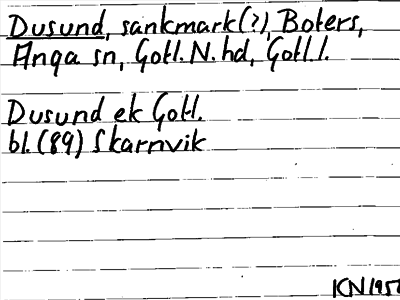 Dusund, sankmark(?), Boters,
Anga sn, Gotl. N. hd, Gotl. l.
Dusund ek Gotl.
bl. (89) Skarnvik
KN 195